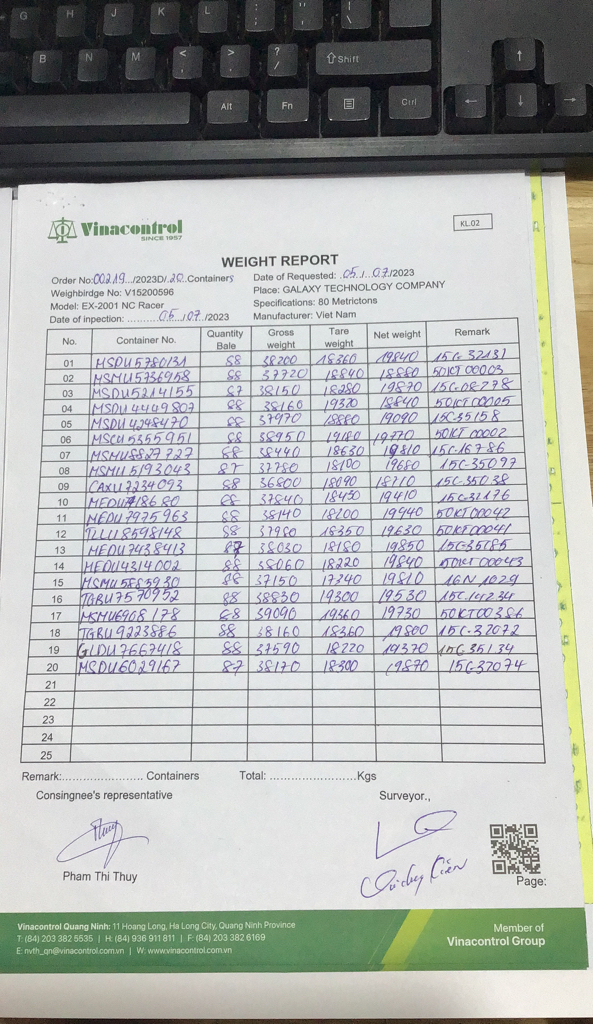 G H J K L : ; " '
B N M < , > . ? / Shift
Alt Fn Ctrl
Vinacontrol
SINCE 1957
KL.02
WEIGHT REPORT
Order No:00219.../2023D/.20.Containers Date of Requested: 05.../07/2023
Weighbirdge No: V15200596 Place: GALAXY TECHNOLOGY COMPANY
Model: EX-2001 NC Racer Specifications: 80 Metrictons
Date of inpection: ..........05../07./2023 Manufacturer: Viet Nam
No. Container No. Quantity Bale Gross weight Tare weight Net weight Remark
01 MSDU5780131 88 38200 18360 19840 15C-32131
02 MSMU5736958 88 37720 18840 18880 50KT00003
03 MSDU5214155 87 38150 18280 19870 15C-08278
04 MSDU4449807 88 38160 19320 18840 50KT00005
05 MSDU4248470 88 37970 18880 19090 15C-35158
06 MSCU5355951 88 38950 19180 19770 50KT00002
07 MSMU8827727 88 38440 18630 19810 15C-16786
08 MSMU5193043 87 37780 18100 19680 15C-35097
09 CAXU7234093 88 36800 18090 18710 15C-35038
10 88 37840 18430 19410 15C-32176
11 MEDU7975963 88 38140 18200 19940 50KT00042
12 TLLU8598148 88 37980 18350 19630 50KT00041
13 MEDU7438413 87 38030 18180 19850 15C-35185
14 MEDU4314002 88 38060 18220 19840 50KT00043
15 MSMU5863930 88 37150 17340 19810 16N 1029
16 TGBU7570952 88 38830 19300 19530 15C-14234
17 MSMU6908178 88 39090 19360 19730 50KT00386
18 TGBU9223886 88 38160 18360 19800 15C-32072
19 GLDU7667418 88 37590 18220 19370 15C35134
20 MSDU6029167 87 38170 18300 19870 15C32074
21
22
23
24
25
Remark:...................... Containers Total: .......................Kgs
Consingnee's representative Surveyor.,
Thuy
Pham Thi Thuy
Page:
Vinacontrol Quang Ninh: 11 Hoang Long, Ha Long City, Quang Ninh Province
T: (84) 203 382 5535 | H: (84) 936 911 811 | F: (84) 203 382 6169
E: nvth_qn@vinacontrol.com.vn | W: www.vinacontrol.com.vn
Member of
Vinacontrol Group